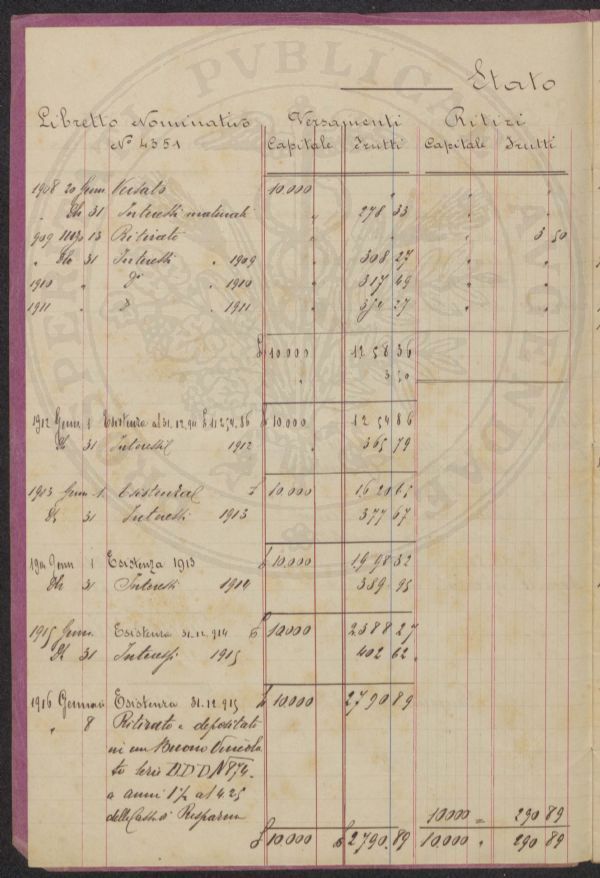 Stato
Libretto Nominativo Versamenti Ritiri
N° 4351 Capitale Frutti Capitale Frutti
1908 20 Genn Versato 10.000 " " "
" Dbr 31 Interessi maturati " 278 33 " "
909 13 Ritirato " " " 3 50
" Dbr 31 Interessi " 1909 " 308 27 " "
1910 " D° " 1910 " 317 49 " "
1911 " " 1911 " 354 27 " "
£ 10.000 1258 36
" 3 50
1912 Genn 1 Esistenza al 31.12.911 £ 11254.86 £ 10.000 1254 86
Db 31 Interessi 1912 " 365 79
1913 Genn 1 £ 10.000 1620 65
Db 31 Interessi 1913 377 67
1914 Genn 1 Esistenza 1913 £ 10.000 1998 32
Dbr 31 Interessi 1914 389 95
1915 Genn. Esistenza 31.12.914 £ 10.000 2388 27
Db 31 Interessi 1915 402 62
1916 Gennaio Esistenza 31.12.915 £ 10.000 2790 89
" 8 Ritirato e depositati
in un Buono Vincola
to Serie D.D.D N° 874.
a anni 1½ al 4.25
della Cassa di Risparmio 10.000 = 290 89
£ 10.000 £ 2790.89 10.000 " 290 89
PUBLICA